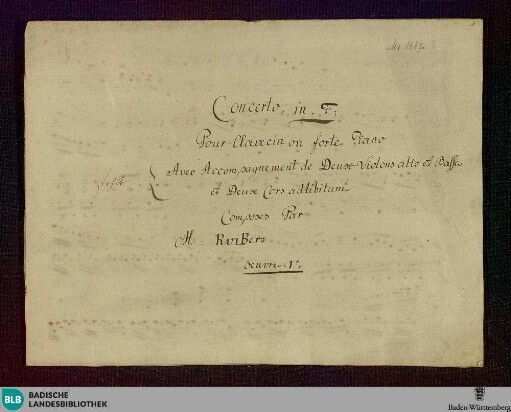 Concerto, in. F:
Pour Clavecin ou forte Piano
Avec Accompagnement de Deux Violons alto et Basse
et Deux Cors adlibitum
Composés Par
M:
Oeuvre. 1r.
BLB BADISCHE
LANDESBIBLIOTHEK
Baden-Württemberg